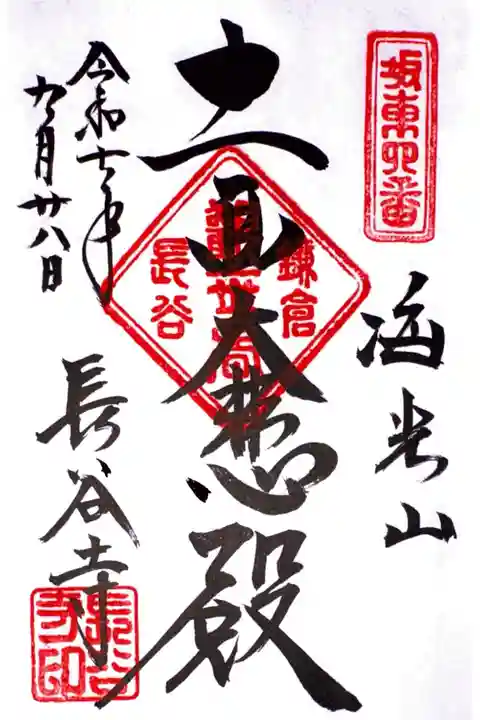 坂東四番
海光山
十一面大悲殿
鎌倉
長谷
令和七年
九月廿八日
長谷寺
長谷寺印